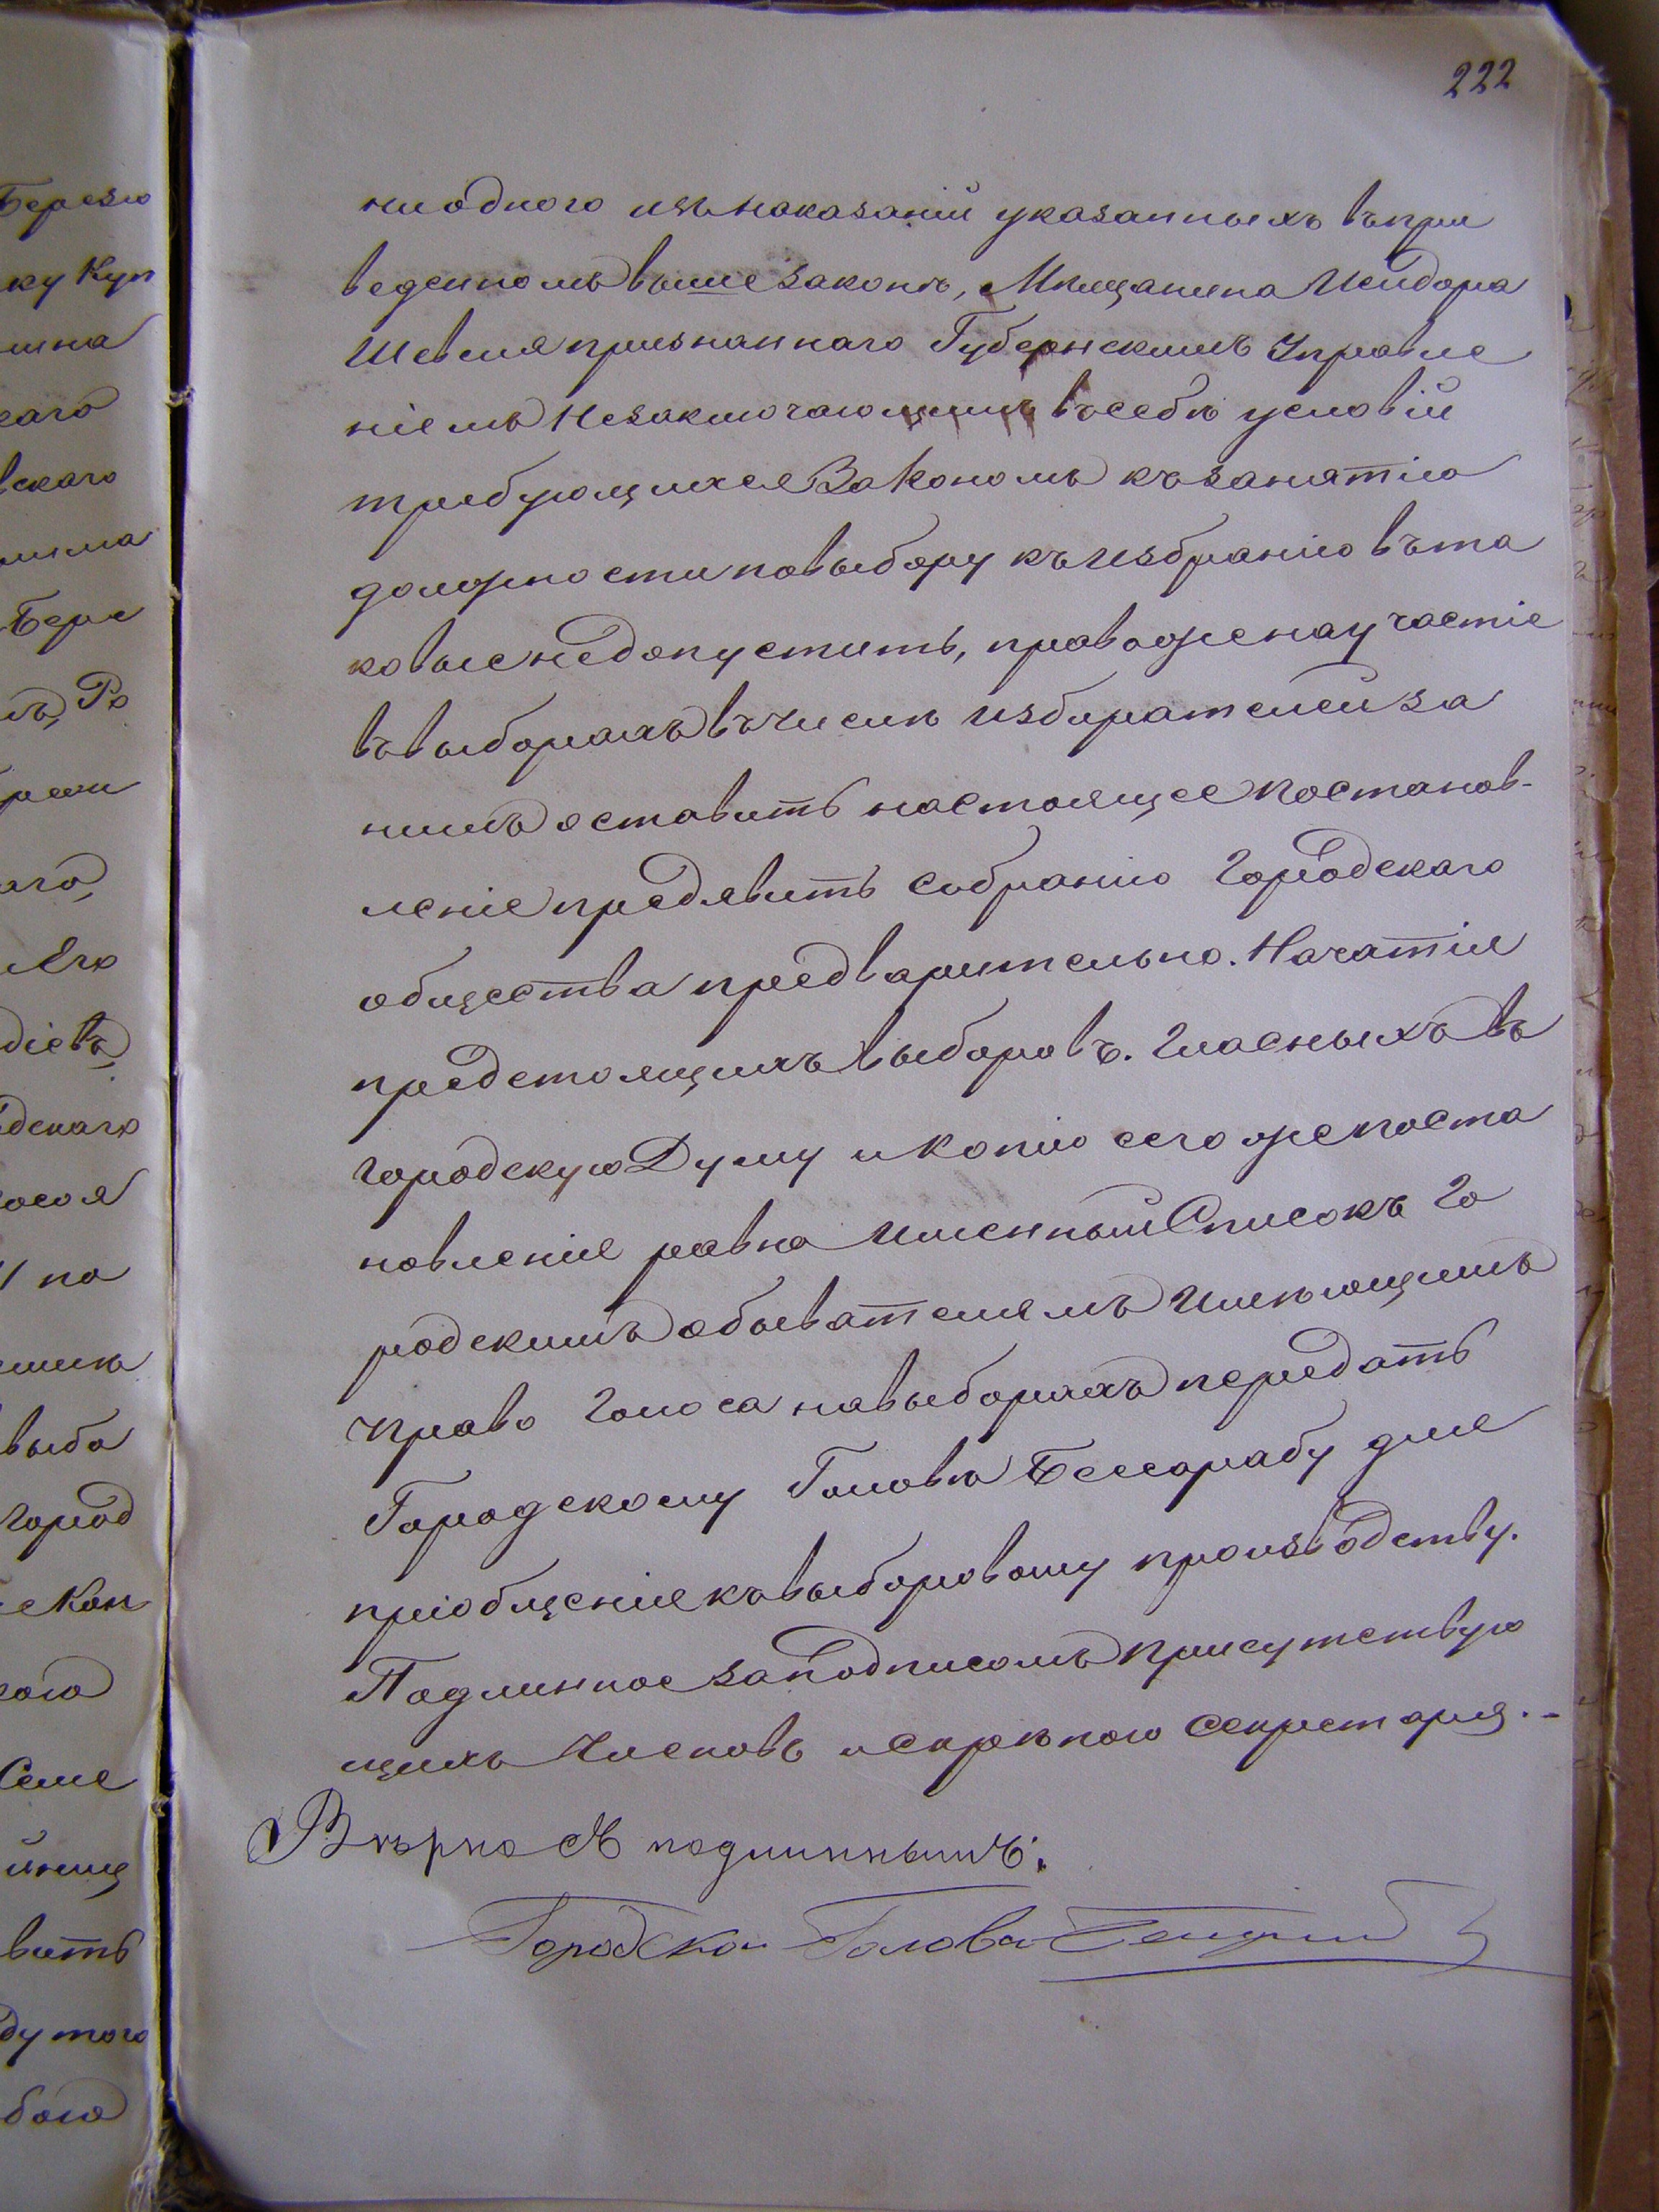 222
ниодного изъ наказаній указанныхъ въ при
веденномъ выше законѣ, Мѣщанина Исидора
Шевеля признаннаго Губернскимъ Управле
ніемъ Незаключающимъ въ себѣ условій
требующихся Закономъ къ занятію
должности по выбору къ избранію въ та
ковые недопустить, право же на участіе
въ выборахъ въ числѣ избирателей за
нимъ оставить настоящее постанов-
леніе предявить собранію Городскаго
общества предварительно. Начатія
предстоящихъ выборовъ. Гласныхъ въ
городскую Думу и Копію сего же поста
новленія равно Именный Списокъ Го
родскимъ обывателямъ Имѣющимъ
право Голоса на выборахъ передать
Городскому Головѣ Бессарабу для
пріобщенія къ выборовому производству.
Подлинное за подписомъ присутствую
щихъ Членовъ и скрѣпою Секретаря.-
Вѣрно съ подлиннымъ:
Городской Голова
Березю
ку Куп
ина
скаго
вскаго
Бере
Ро
аго,
Его
діевъ
дскаго
по
выбо
город
Кан
Семе
вить
ду того
бою